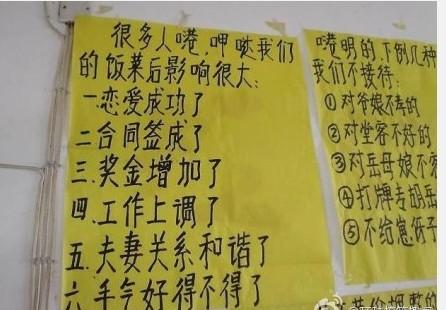 很多人嗟,呷哒我们
的饭菜后影响很大:
一恋爱成功了
二合同签成了
三.奖金增加了
四.工作上调了
五.夫妻关系和谐了
六.手气好得不得了
嗟明的下例几种
我们不接待:
①对爷娘不孝的
②对堂客不好的
③对岳母娘不
④打牌专胡岳
⑤不给崽伢子